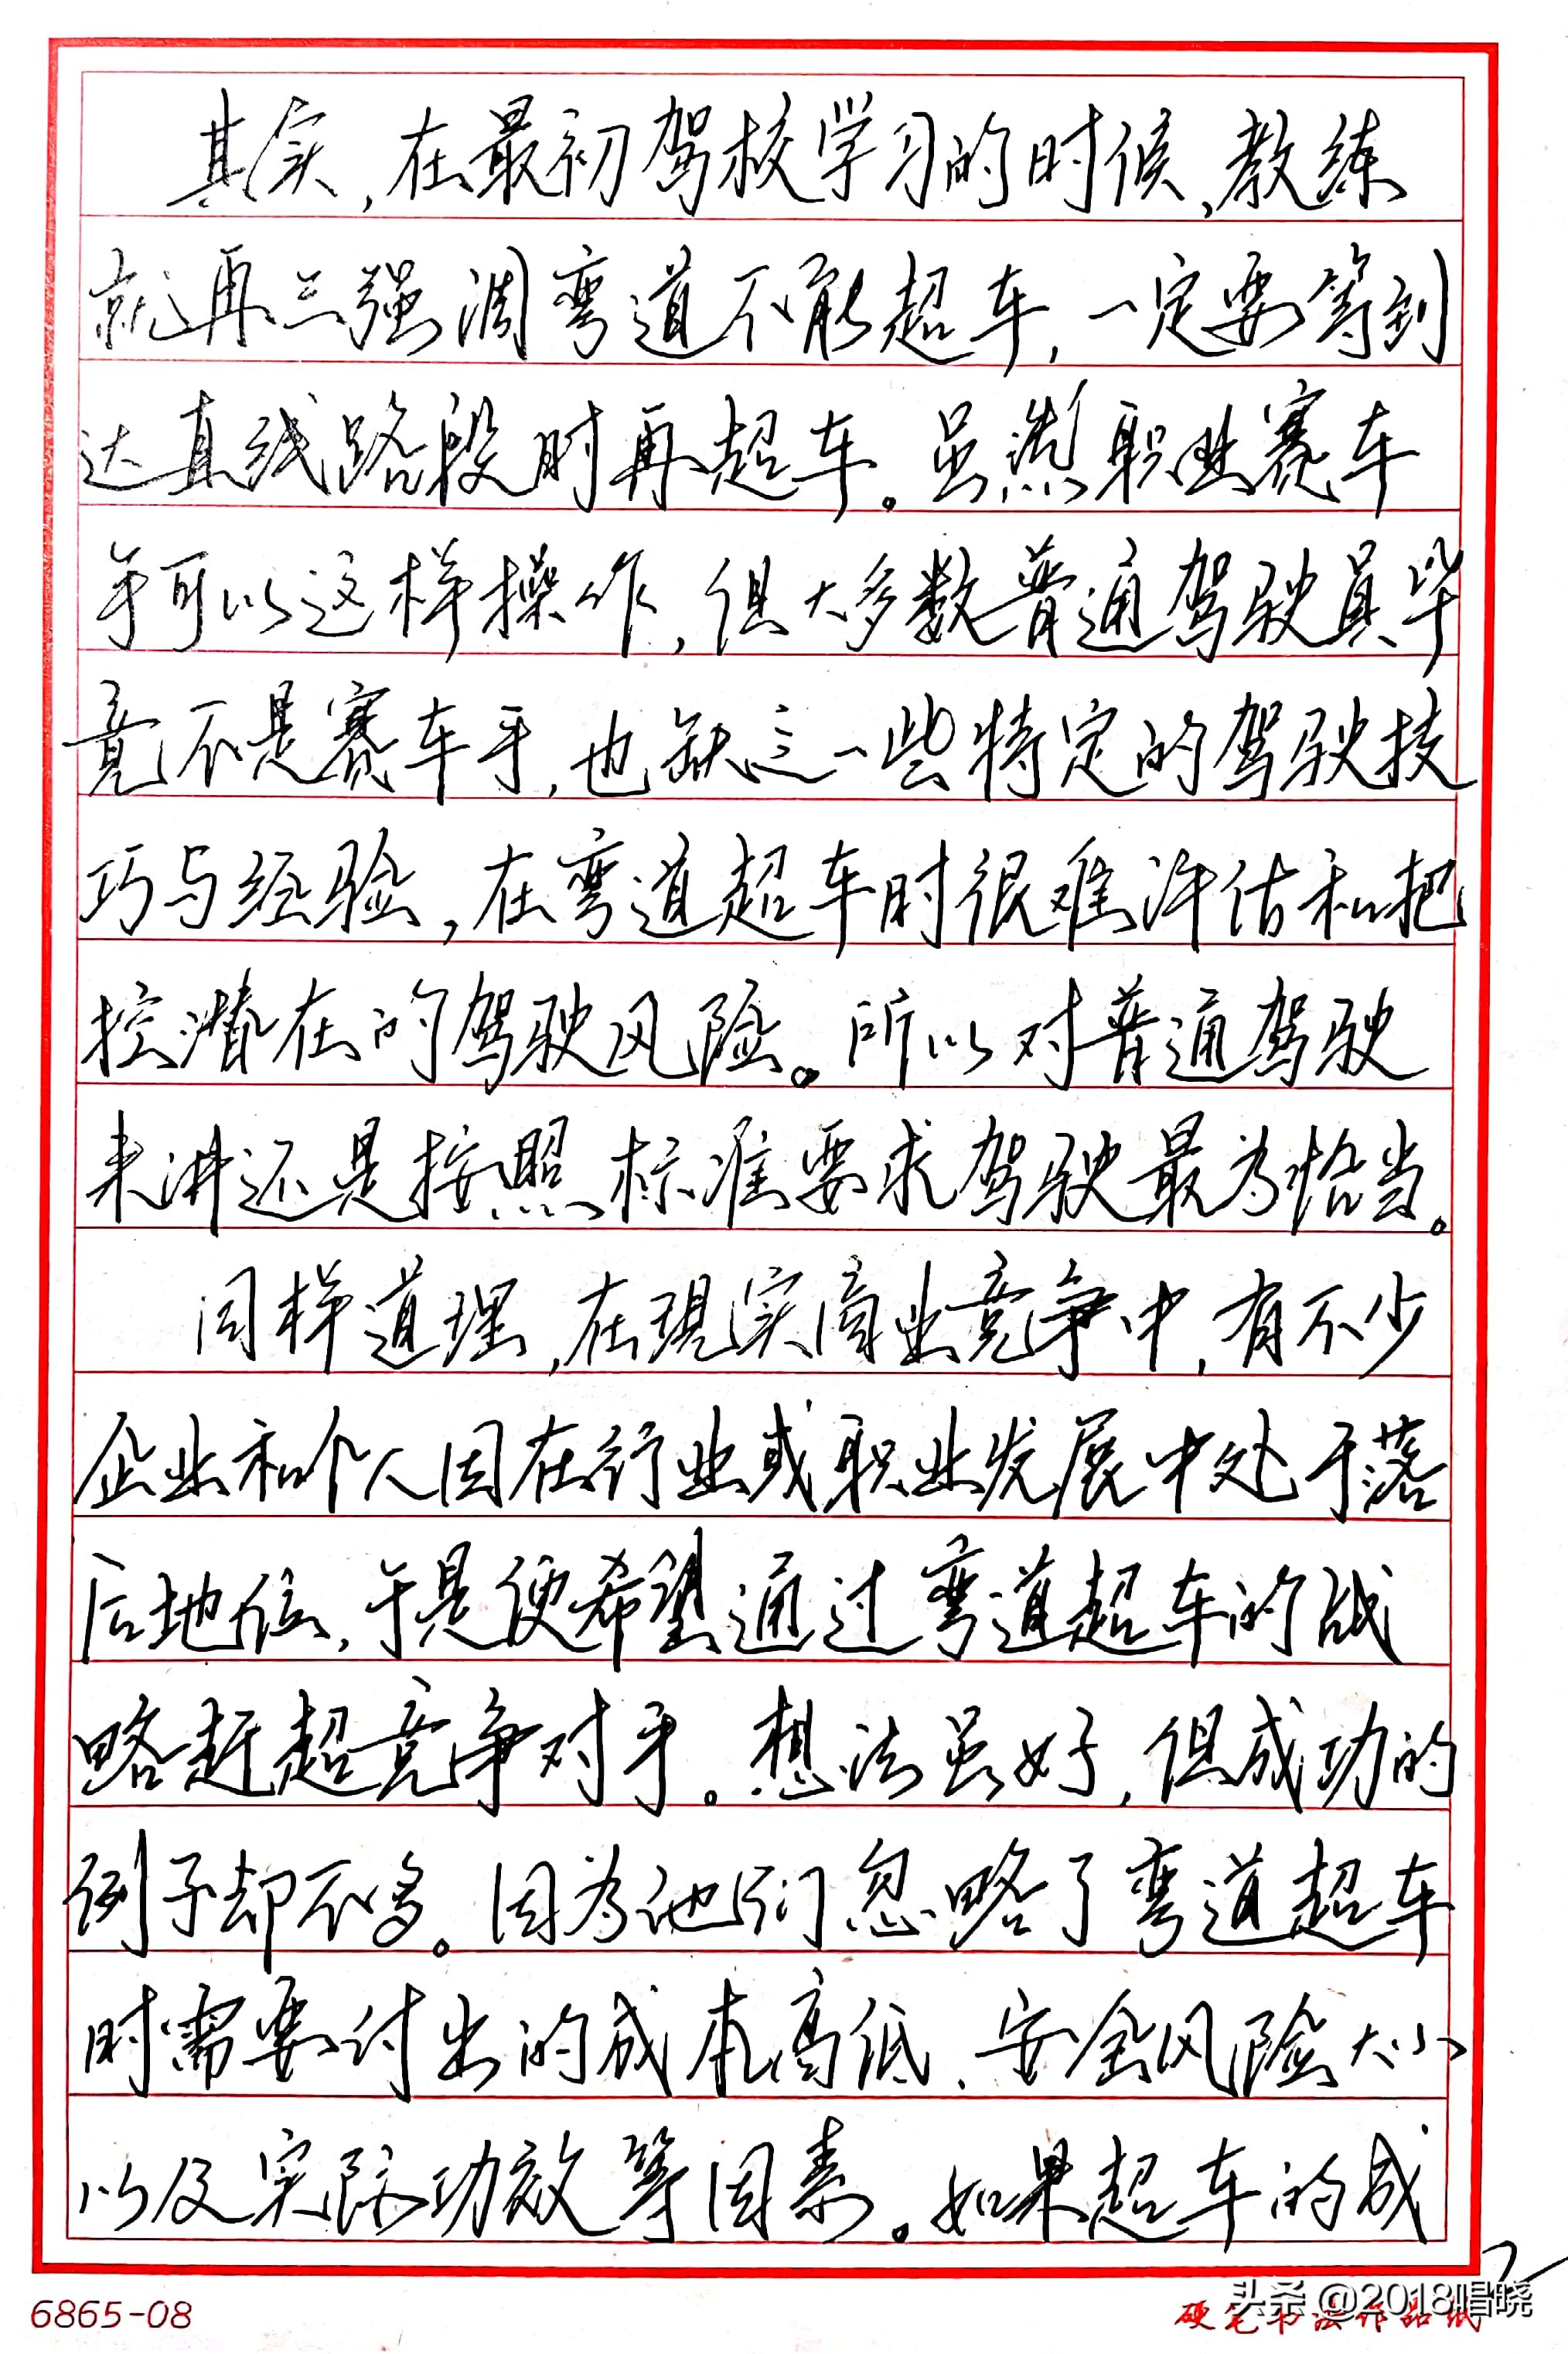 其实,在最初驾校学习的时候,教练
就再三强调弯道不能超车,一定要等到
达直线路段时再超车。虽然职业赛车
手可以这样操作,但大多数普通驾驶员毕
竟不是赛车手,也缺乏一些特定的驾驶技
巧与经验,在弯道超车时很难评估和把
控潜在的驾驶风险。所以对普通驾驶
来讲还是按照标准要求驾驶最为恰当。
同样道理,在现实商业竞争中,有不少
企业和个人因在行业或职业发展中处于落
后地位,于是便希望通过弯道超车的战
略赶超竞争对手。想法虽好,但成功的
例子却不多。因为他们忽略了弯道超车
时需要付出的成本高低、安全风险大小
以及实际功效等因素。如果超车的成
2
6865-08
硬笔书法作品纸
头条 @2018唱晓